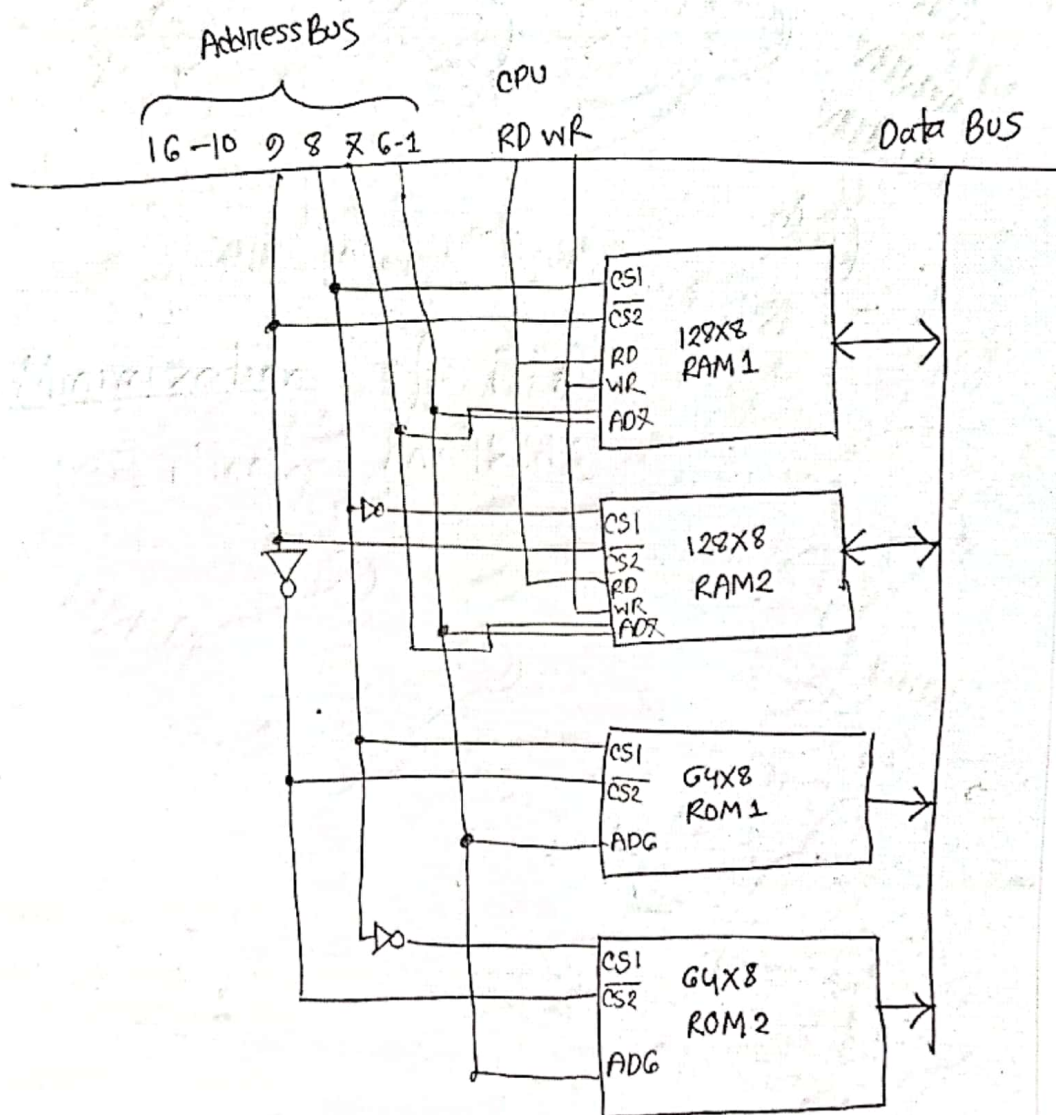 Address Bus
CPU
16-10 9 8 7 6-1 RD WR Data Bus
CS1
C̅S̅2̅
RD
WR
AD7
128X8
RAM 1
CS1
C̅S̅2̅
RD
WR
AD7
128X8
RAM2
CS1
C̅S̅2̅
AD6
64X8
ROM 1
CS1
C̅S̅2̅
AD6
64X8
ROM 2